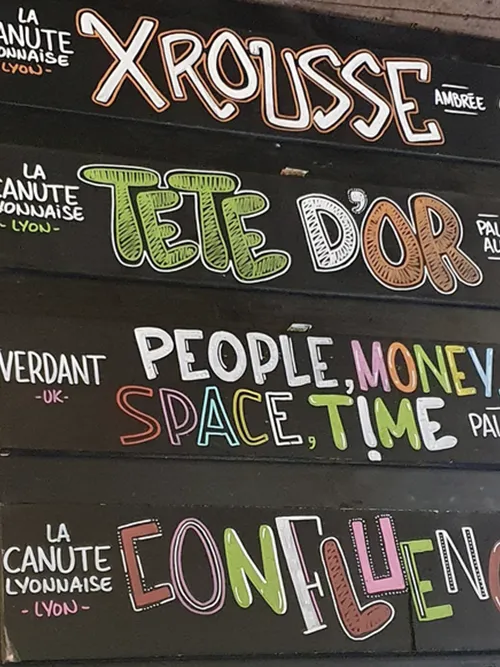 LA
CANUTE
LYONNAISE
-LYON-
XROUSSE
AMBRÉE
LA
CANUTE
LYONNAISE
-LYON-
TETE D'OR
VERDANT
-UK-
PEOPLE, MONEY
SPACE, T!ME
LA
CANUTE
LYONNAISE
-LYON-